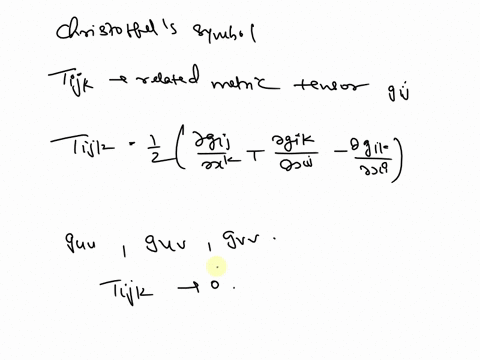 Christoffel's symbol
Γijk → related metric tensor gij
Γijk = 1/2 ( ∂gij/∂x^k + ∂gik/∂x^j - ∂gik/∂x^i )
guu , guv , gvv .
Γijk → 0 .